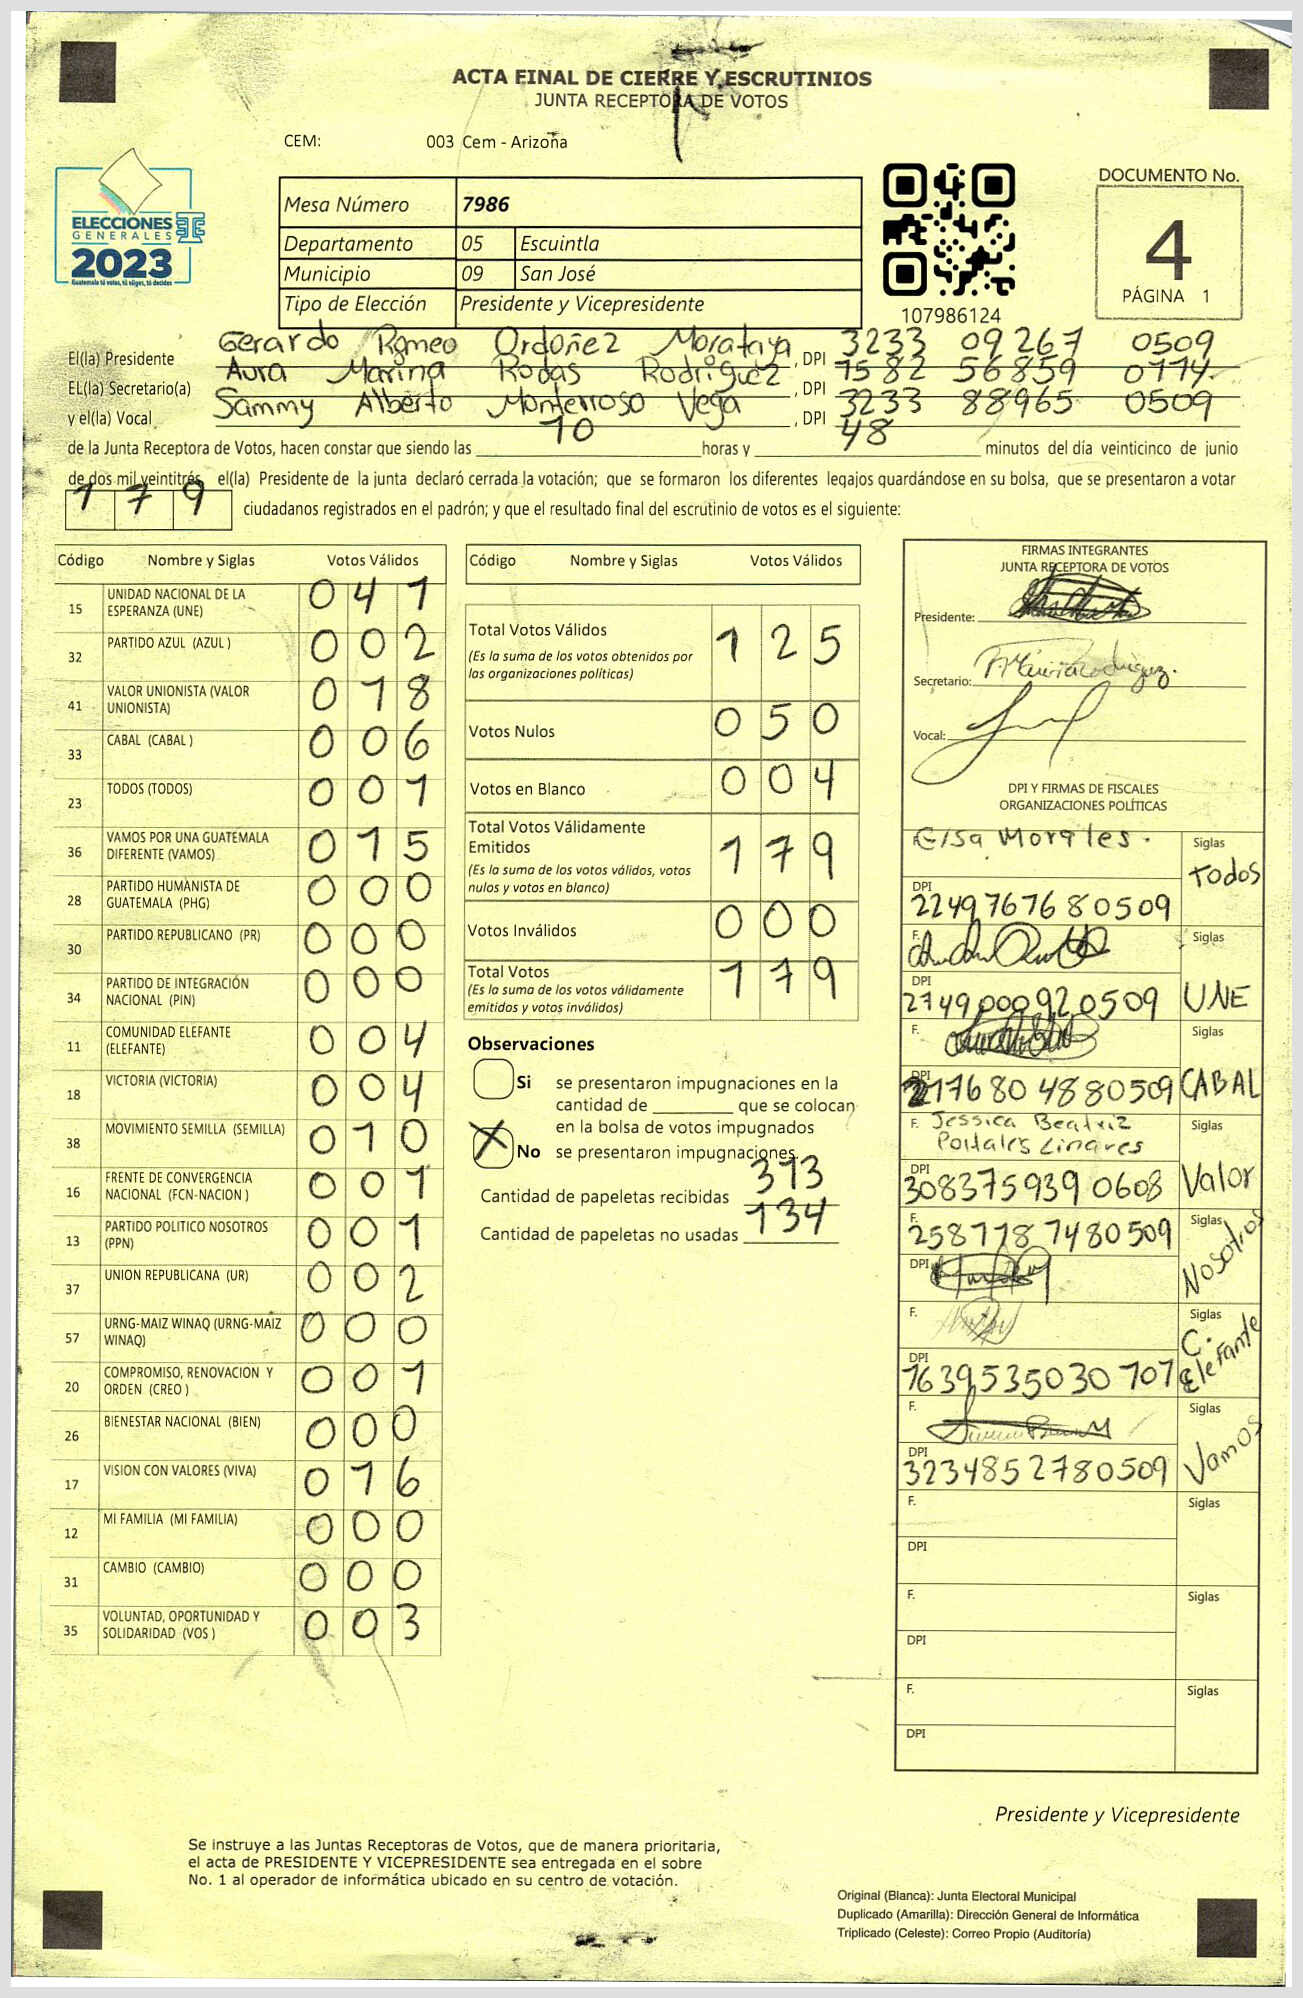 ACTA FINAL DE CIERRE Y ESCRUTINIOS
JUNTA RECEPTORA DE VOTOS
CEM: 003 Cem - Arizona
ELECCIONES
GENERALES
2023
Guatemala tú votas, tú eliges, tú decides
Mesa Número 7986
Departamento 05 Escuintla
Municipio 09 San José
Tipo de Elección Presidente y Vicepresidente
107986124
DOCUMENTO No.
4
PÁGINA 1
El(la) Presidente Gerardo Romeo Ordoñez Morataya, DPI 3233 09267 0509
EL(la) Secretario(a) Aura Marina Rodas Rodriguez, DPI 1582 56859 0114
y el(la) Vocal Sammy Alberto Monterroso Vega, DPI 3233 88965 0509
de la Junta Receptora de Votos, hacen constar que siendo las 10 horas y 48 minutos del día veinticinco de junio
de dos mil veintitrés, el(la) Presidente de la junta declaró cerrada la votación; que se formaron los diferentes legajos quardándose en su bolsa, que se presentaron a votar
179 ciudadanos registrados en el padrón; y que el resultado final del escrutinio de votos es el siguiente:
Código Nombre y Siglas Votos Válidos
15 UNIDAD NACIONAL DE LA ESPERANZA (UNE) 041
32 PARTIDO AZUL (AZUL ) 002
41 VALOR UNIONISTA (VALOR UNIONISTA) 018
33 CABAL (CABAL ) 006
23 TODOS (TODOS) 001
36 VAMOS POR UNA GUATEMALA DIFERENTE (VAMOS) 015
28 PARTIDO HUMANISTA DE GUATEMALA (PHG) 000
30 PARTIDO REPUBLICANO (PR) 000
34 PARTIDO DE INTEGRACIÓN NACIONAL (PIN) 000
11 COMUNIDAD ELEFANTE (ELEFANTE) 004
18 VICTORIA (VICTORIA) 004
38 MOVIMIENTO SEMILLA (SEMILLA) 010
16 FRENTE DE CONVERGENCIA NACIONAL (FCN-NACION ) 001
13 PARTIDO POLITICO NOSOTROS (PPN) 001
37 UNION REPUBLICANA (UR) 002
57 URNG-MAIZ WINAQ (URNG-MAIZ WINAQ) 000
20 COMPROMISO, RENOVACION Y ORDEN (CREO ) 001
26 BIENESTAR NACIONAL (BIEN) 000
17 VISION CON VALORES (VIVA) 016
12 MI FAMILIA (MI FAMILIA) 000
31 CAMBIO (CAMBIO) 000
35 VOLUNTAD, OPORTUNIDAD Y SOLIDARIDAD (VOS ) 003
Código Nombre y Siglas Votos Válidos
Total Votos Válidos 125
(Es la suma de los votos obtenidos por
las organizaciones políticas)
Votos Nulos 050
Votos en Blanco 004
Total Votos Válidamente Emitidos 179
(Es la suma de los votos válidos, votos
nulos y votos en blanco)
Votos Inválidos 000
Total Votos 179
(Es la suma de los votos válidamente
emitidos y votos inválidos)
Observaciones
Si se presentaron impugnaciones en la
cantidad de ________ que se colocan
en la bolsa de votos impugnados
X No se presentaron impugnaciones.
Cantidad de papeletas recibidas 313
Cantidad de papeletas no usadas 134
FIRMAS INTEGRANTES
JUNTA RECEPTORA DE VOTOS
Presidente:
Secretario:
Vocal:
DPI Y FIRMAS DE FISCALES
ORGANIZACIONES POLÍTICAS
Elsa Morales. Siglas Todos
DPI 2249767680509
F. Siglas UNE
DPI 2749000920509
F. Siglas CABAL
DPI 2176804880509
F. Jessica Beatriz Portales Linares Siglas Valor
DPI 3083759390608
F. 2587787480509 Siglas Nosotros
DPI
F. Siglas C. Elefante
DPI 1639535030707
F. Siglas Vamos
DPI 3234852780509
F. Siglas
DPI
F. Siglas
DPI
F. Siglas
DPI
Presidente y Vicepresidente
Se instruye a las Juntas Receptoras de Votos, que de manera prioritaria,
el acta de PRESIDENTE Y VICEPRESIDENTE sea entregada en el sobre
No. 1 al operador de informática ubicado en su centro de votación.
Original (Blanca): Junta Electoral Municipal
Duplicado (Amarilla): Dirección General de Informática
Triplicado (Celeste): Correo Propio (Auditoría)